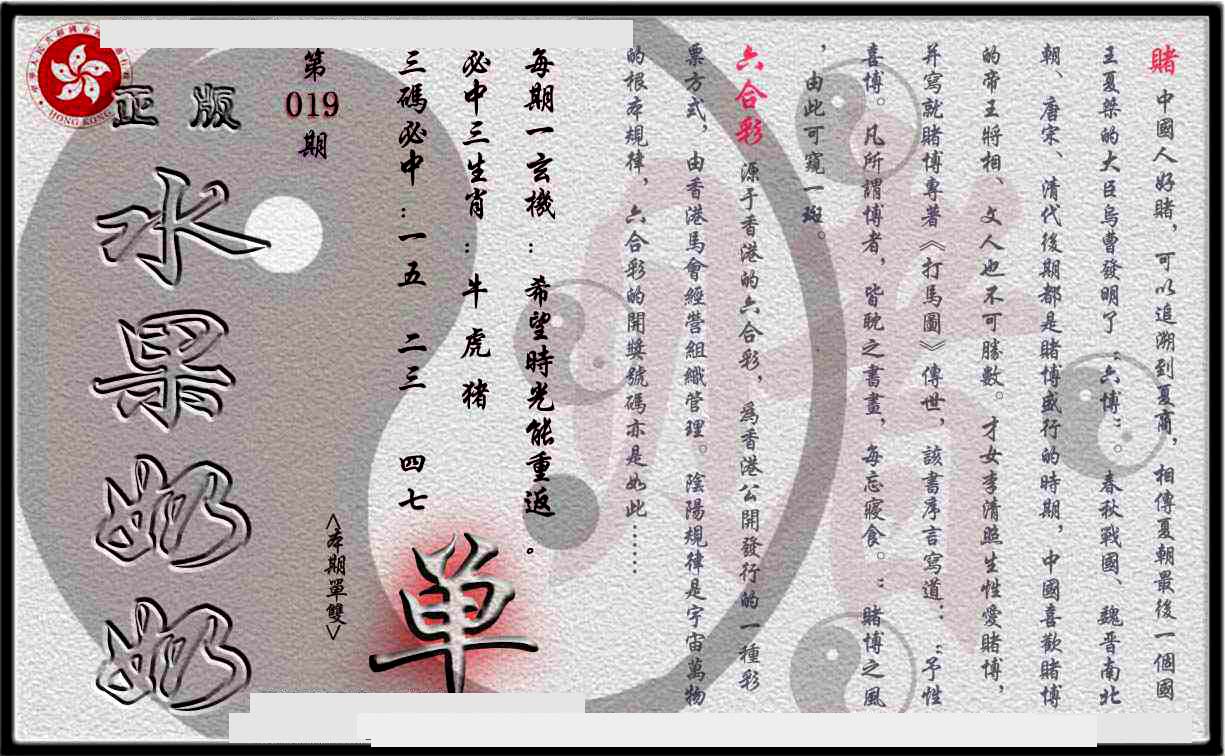 賭 中國人好賭，可以追溯到夏商，相傳夏朝最後一個國
王夏桀的大臣烏曹發明了“六博”。春秋戰國、魏晋南北
朝、唐宋、清代後期都是賭博盛行的時期，中國喜歡賭博
的帝王將相、文人也不可勝數。才女李清照生性愛賭博，
并寫就賭博專著《打馬圖》傳世，該書序言寫道：“予性
喜博。凡所謂博者，皆耽之書畫，每忘寢食。”賭博之風
，由此可窺一斑。
六合彩 源于香港的六合彩，為香港公開發行的一種彩
票方式，由香港馬會經營組織管理。陰陽規律是宇宙萬物
的根本規律，六合彩的開獎號碼亦是如此……
每期一玄機：希望時光能重返。
必中三生肖：牛 虎 猪
三碼必中：一五 二三 四七
第
019
期
<本期單雙>
单
正版
水果奶奶
HONG KONG